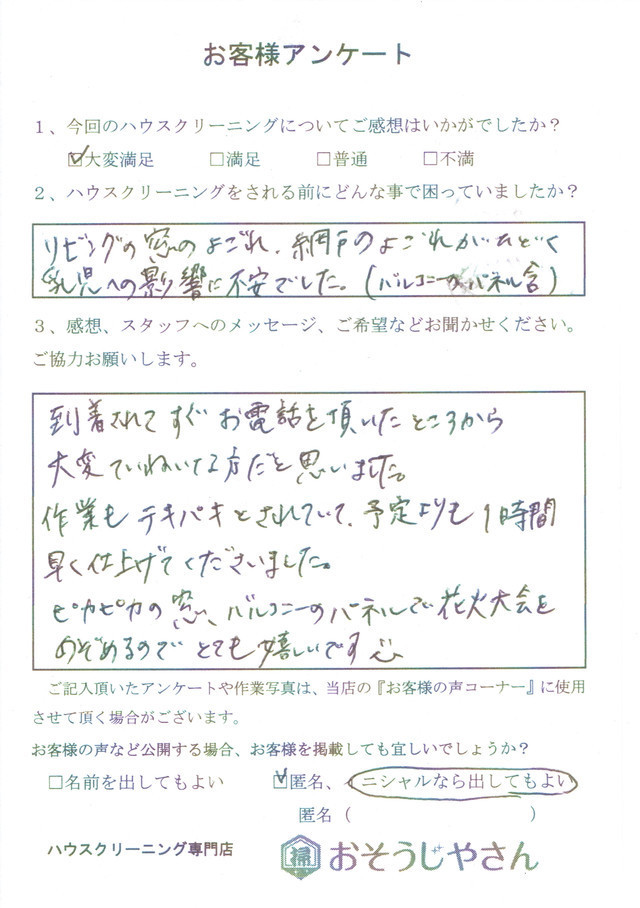 お客様アンケート
1、今回のハウスクリーニングについてご感想はいかがでしたか？
☑大変満足 □満足 □普通 □不満
2、ハウスクリーニングをされる前にどんな事で困っていましたか？
リビングの窓のよごれ、網戸のよごれがひどく
乳児への影響に不安でした。(バルコニーのパネル含)
3、感想、スタッフへのメッセージ、ご希望などお聞かせください。
ご協力お願いします。
到着されてすぐお電話を頂いたところから
大変ていねいな方だと思いました。
作業もテキパキとされていて、予定よりも1時間
早く仕上げてくださいました。
ピカピカの窓、バルコニーのパネルで花火大会を
のぞめるのでとても嬉しいです
ご記入頂いたアンケートや作業写真は、当店の『お客様の声コーナー』に使用
させて頂く場合がございます。
お客様の声など公開する場合、お客様を掲載しても宜しいでしょうか？
□名前を出してもよい ☑匿名、イニシャルなら出してもよい
匿名（ ）
ハウスクリーニング専門店 掃 おそうじやさん